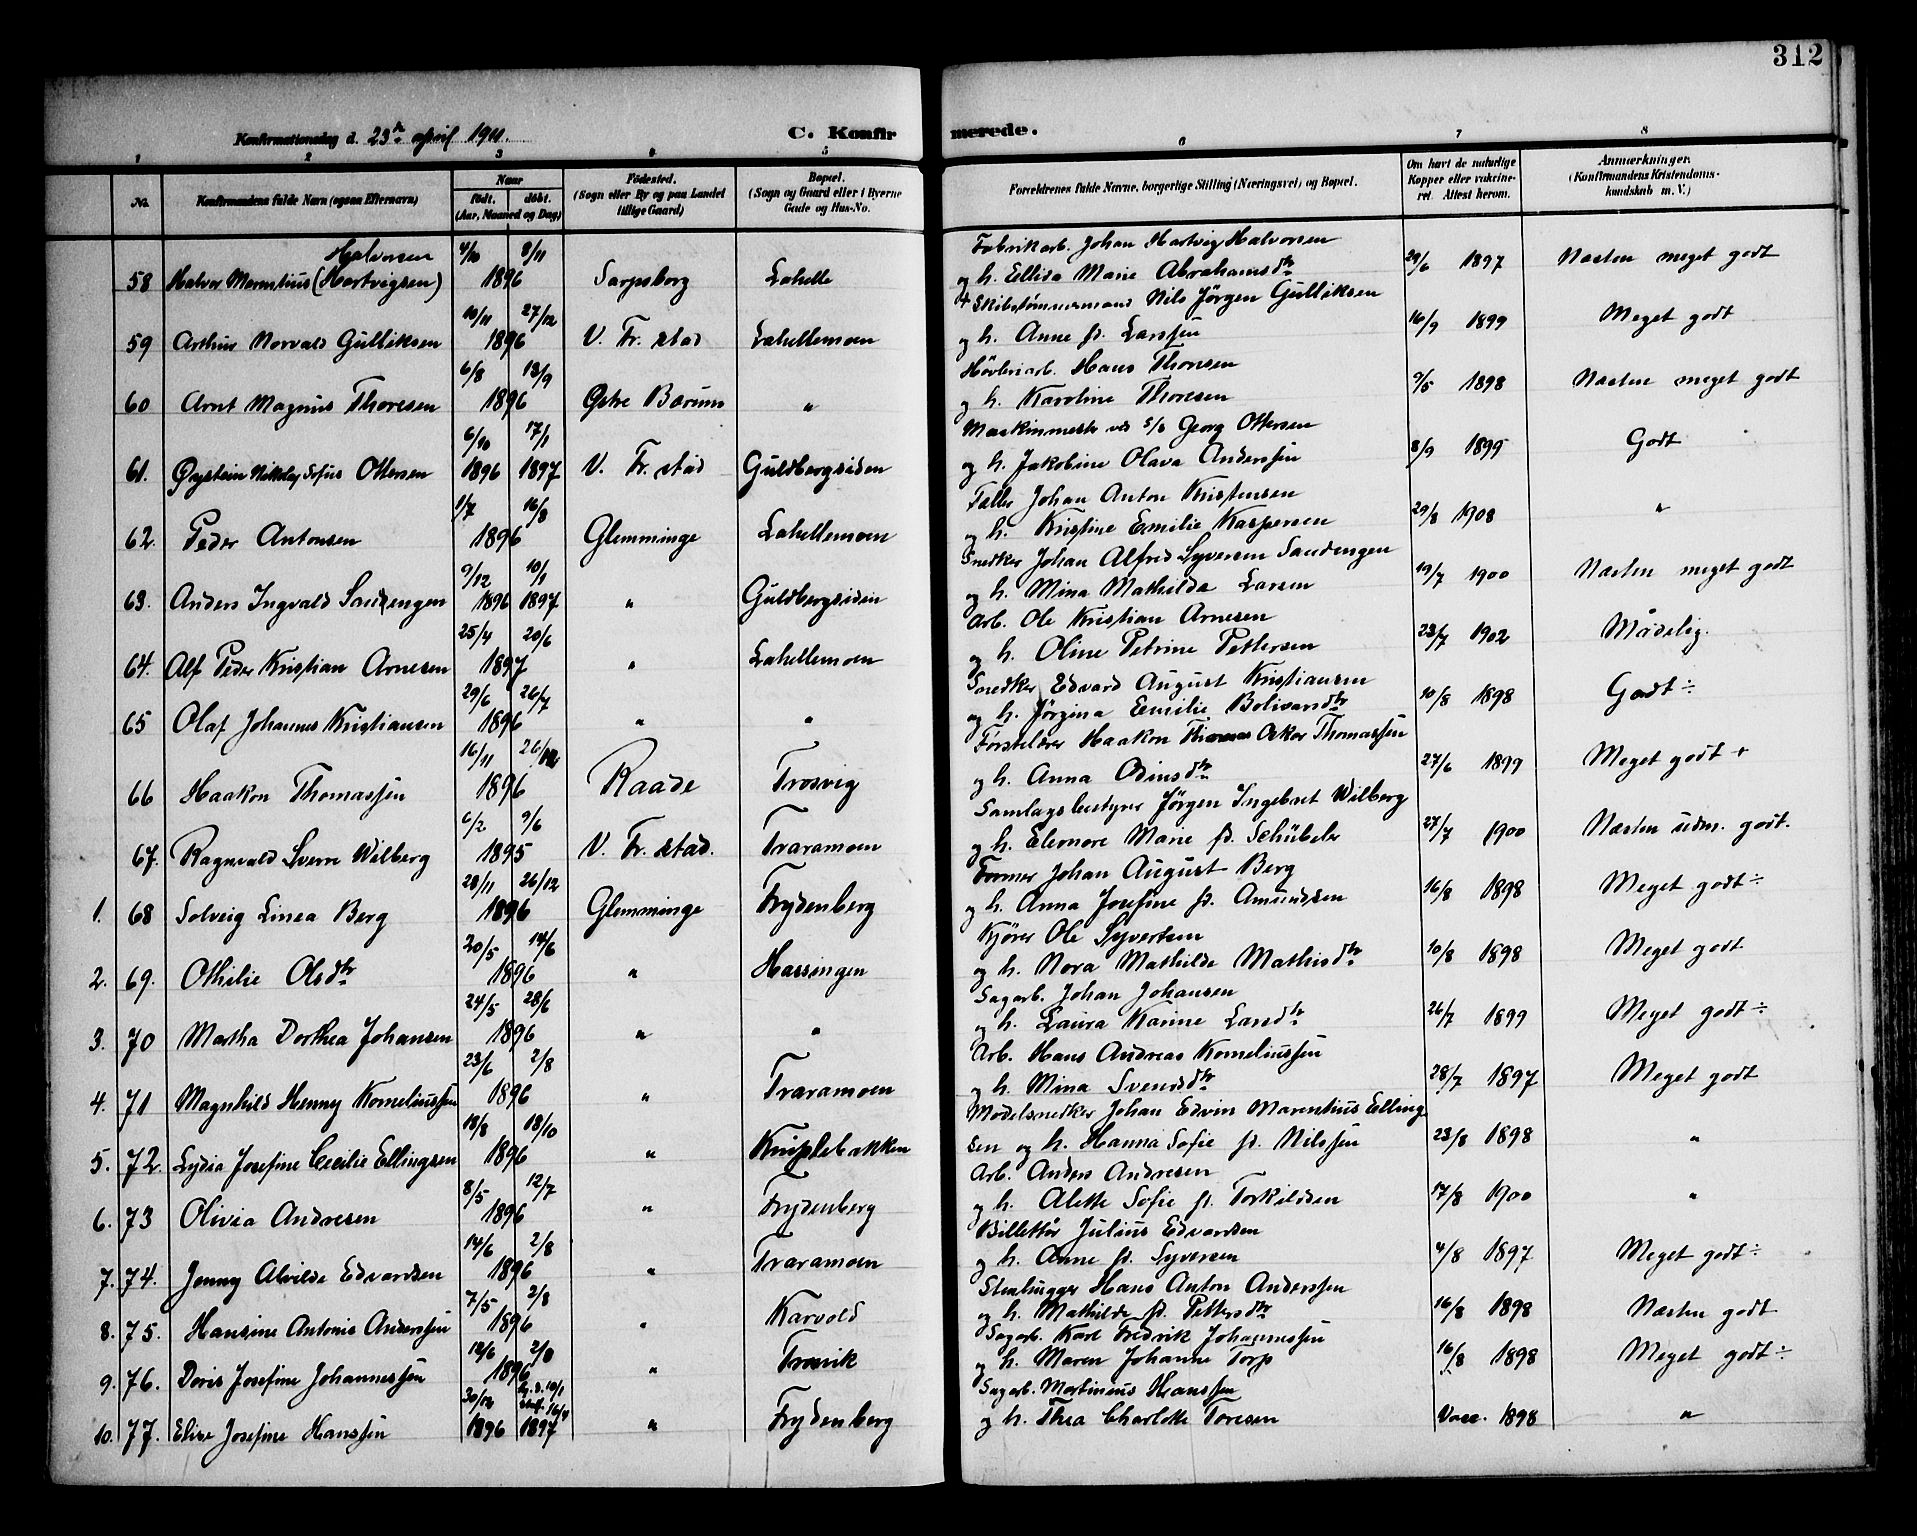 312
Konfirmationsdag d. 23de april 1911. C. Konfirmerede.
1 2 3 4 5 6 7 8
No. Konfirmandens fulde Navn (ogsaa Efternavn) Naar født. døbt. (Aar, Maaned og Dag) Fødested. (Sogn eller By og paa Landet tillige Gaard) Bopæl. (Sogn og Gaard eller i Byerne Gade og Hus-No. Forældrenes fulde Navne, borgerlige Stilling (Næringsvei) og Bopæl. Om havt de naturlige Kopper eller vakcineret. Attest herom. Anmærkninger. (Konfirmandens Kristendomskundskab m. V.)
Halvorsen 4/10 8/11 Fabrikarb. Johan Hartvig Halvorsen
58 Halvor Marentius (Hartvigsen) 1896 Sarpsborg Lahelle og h. Ellisa Marie Abrahamsdtr 29/6 1897 Næsten meget godt
10/11 27/12 + Skibstømmermand Nils Jörgen Gulliksen
59 Arthur Norvald Gulliksen 1896 V. Fr. stad Lahellemoen og h. Anne f. Larssen 16/9 1899 Meget godt
6/8 13/9 Høvleriarb. Hans Thoresen
60 Arnt Magnus Thoresen 1896 Østre Bærum " og h. Karoline Thoresen 9/5 1898 Næsten meget godt
6/10 17/1 Maskinmester ved S/S Georg Ottersen
61. Øystein Nikolay Sofus Ottersen 1896 1897 V. Fr. stad Guldbergsiden og h. Jakobine Olava Anderssen 8/9 1899 Godt
1/7 16/8 Tæller Johan Anton Kristensen
62. Peder Antonsen 1896 Glemminge Lahellemoen og h. Kristine Emilie Kaspersen 29/8 1908 "
9/12 10/1 Snedker Johan Alfred Syversen Sandengen
63. Anders Ingvald Sandengen 1896 1897 " Guldbergsiden og h. Mina Mathilde Larsen 19/7 1900 Næsten meget godt
25/4 20/6 Arb. Ole Kristian Arnesen
64. Alf Peder Kristian Arnesen 1897 " Lahellemoen og h. Oline Petrine Pettersen 23/7 1902 Mådelig.
29/6 26/7 Snedker Edvard August Kristiansen
65 Olaf Johannes Kristiansen 1896 " " og h. Jörgina Emilie Bolivarsdtr 10/8 1898 Godt ÷
16/11 26/12 Haakon Thomas Oskar Thomassen
66 Haakon Thomassen 1896 Raade Trosvig og h. Anna Odinsdtr 27/6 1899 Meget godt +
6/2 9/6 Samlagsbestyrer Jörgen Ingebret Wilberg
67. Ragnvald Sverre Wilberg 1895 V. Fr. stad. Traramoen og h. Eleonore Marie f. Schübeler 27/7 1900 Næsten udm. godt.
28/11 26/12 Former Johan August Berg
1. 68 Solveig Linea Berg 1896 Glemminge Frydenberg og h. Anna Josefine f. Amundsen 16/8 1898 Meget godt ÷
20/5 14/6 Kjører Ole Syvertsen
2. 69. Othilie Olsdtr 1896 " Hassingen og h. Nora Mathilde Mathisdtr 10/8 1898 Meget godt
24/5 28/6 Sagarb. Johan Johansen
3. 70 Martha Dorthea Johansen 1896 " " og h. Laura Karine Larsdtr 26/7 1899 Meget godt ÷
23/6 2/8 Arb. Hans Andreas Korneliussen
4. 71 Magnhild Henny Korneliussen 1896 " Traramoen og h. Mina Svendsdtr 28/7 1897 Meget godt
18/8 18/10 Modelsnedker Johan Edvin Marentius Elling-
5. 72. Lydia Josefine Cecilie Ellingsen 1896 " Kniplebakken sen og h. Hanna Sofie f. Nilssen 23/8 1898 "
8/5 12/7 Arb. Anders Andresen
6. 73 Olivia Andresen 1896 " Frydenberg og h. Alette Sofie f. Torkildsen 17/8 1900 "
14/6 2/8 Billettør Julius Edvardsen
7. 74. Jenny Alvilde Edvardsen 1896 " Traramoen og h. Anne f. Syversen 4/8 1897 Meget godt ÷
7/5 2/8 Stenhugger Hans Anton Anderssen
8. 75. Hansine Antonie Anderssen 1896 " Karvold og h. Mathilde f. Pettersdtr 16/8 1898 Næsten godt
18/6 2/8 Sagarb. Karl Fredrik Johannessen
9. 76. Doris Josefine Johannessen 1896 " Trosvik og h. Maren Johanne Torp 16/8 1898 Meget godt ÷
30/12 hj. d. 10/1 stadf. 16/4 Sagarb. Martinius Hanssen
10. 77. Elise Josefine Hanssen 1896 1897 " Frydenberg og h. Thea Charlotte Toresen Vacc. 1898 "